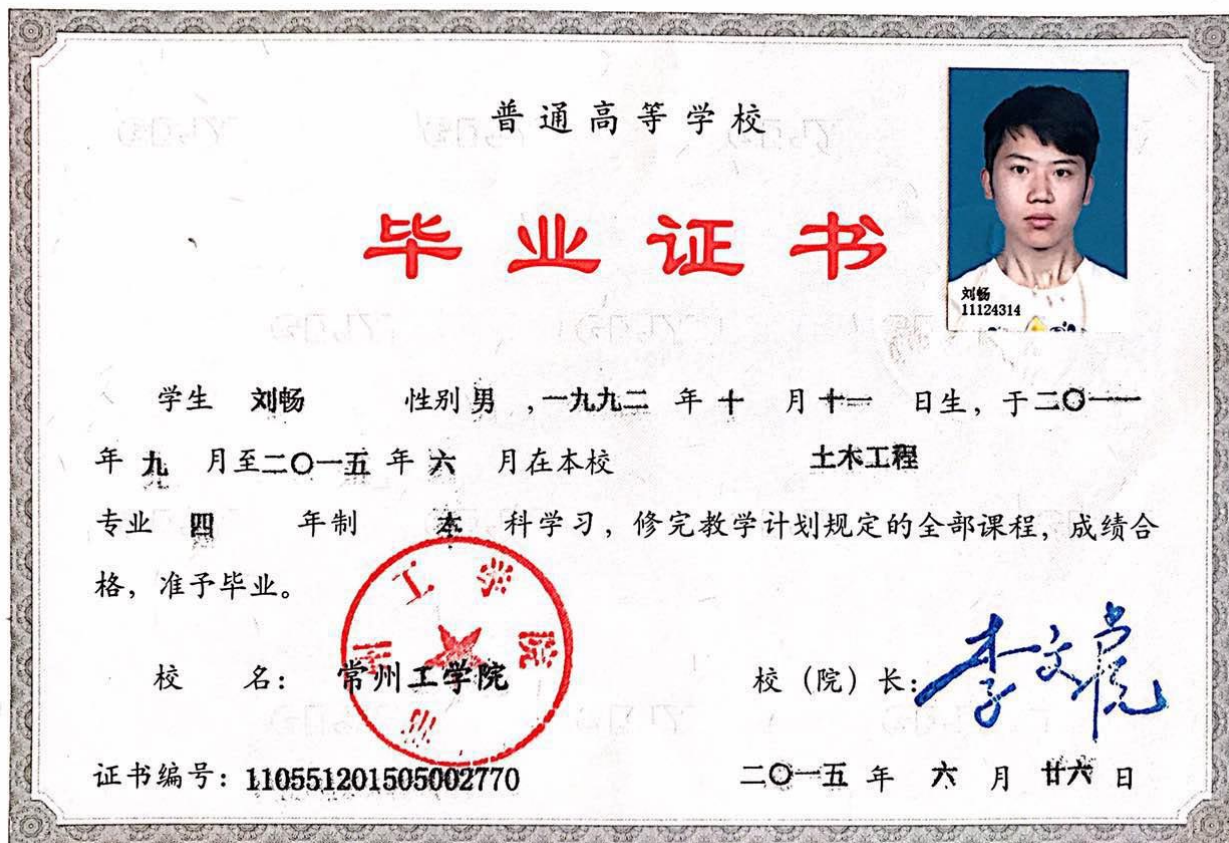 普通高等学校
毕业证书
刘畅
11124314
学生 刘畅 性别 男 ，一九九二 年 十 月 十一 日生，于二〇一一
年 九 月至二〇一五 年 六 月在本校 土木工程
专业 四 年制 本 科学习，修完教学计划规定的全部课程，成绩合
格，准予毕业。
校 名： 常州工学院 校（院）长：
证书编号：110551201505002770 二〇一五 年 六 月 廿六 日